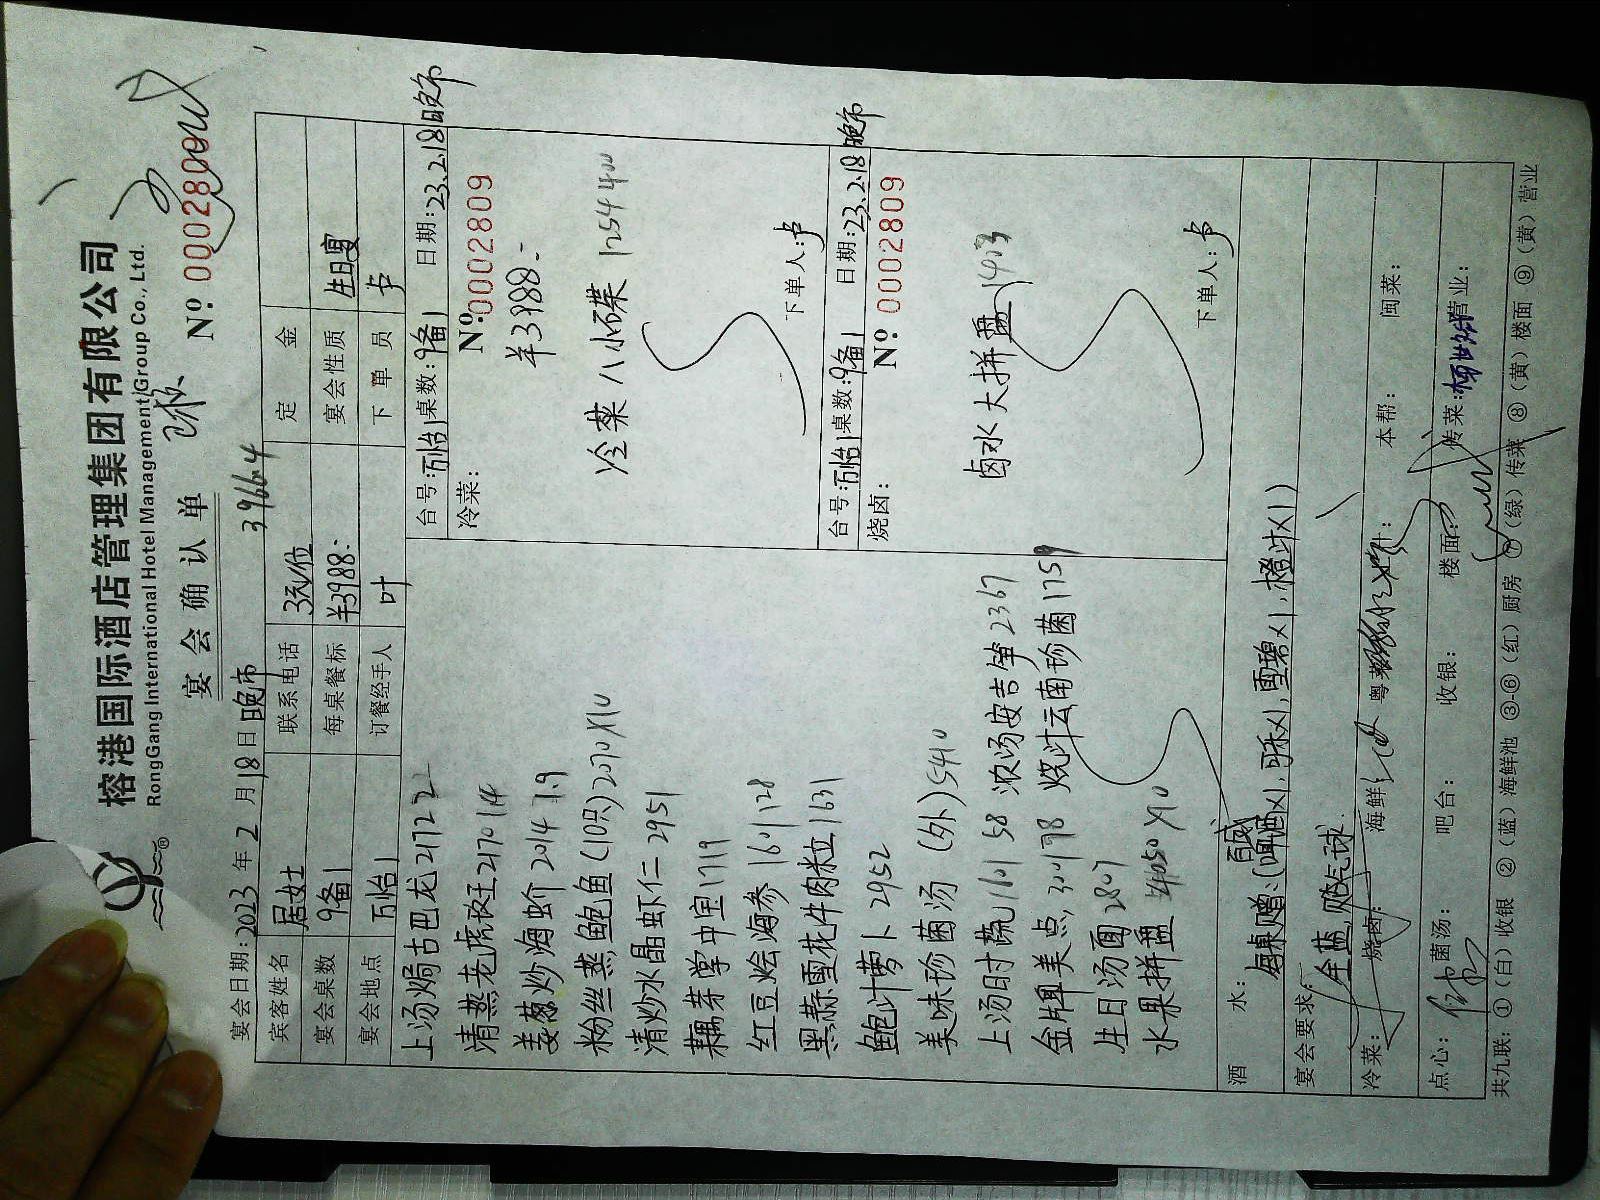 榕港国际酒店管理集团有限公司
RongGang International Hotel Management Group Co., Ltd.
宴会确认单
Nº 000280
宴会日期: 2023 年 2 月 18 日 晚市
3966.4
宾客姓名 居女士 联系电话 3元/位 定金
宴会桌数 9备1 每桌餐标 ¥3988- 宴会性质 生日宴
宴会地点 万怡1 订餐经手人 叶 下单员 卢
上汤焗古巴龙 2172 2
清蒸老虎斑 2170 14
姜葱炒海蚧 2014 1.9
粉丝蒸鲍鱼 (10只) 2070X10
清炒水晶虾仁 2951
藕芽掌中宝 1719
红豆烩海参 1601 128
黑蒜雪花牛肉粒 1631
鲍汁萝卜 2952
美味珍菌汤 (外) 5410
上汤时蔬 1601 58 浓汤安吉笋 2367
金牌美点 烧汁云南珍菌 1759
生日汤面 2807
水果拼盘 4050 X10
台号: 万怡1 桌数: 9备1 日期: 23.2.18 晚市
冷菜: Nº 0002809
¥3988-
冷菜八小碟 1254 400
下单人: 卢
台号: 万怡1 桌数: 9备1 日期: 23.2.18 晚市
烧卤: Nº 0002809
卤水大拼盘 1403
下单人: 卢
酒水: 每桌赠: (啤酒X1, 可乐X1, 雪碧X1, 橙汁X1)
宴会要求:
冷菜: 烧卤: 海鲜: 粤 本帮: 闽菜:
点心: 菌汤: 吧台: 收银: 楼面: 传菜: 营业:
共九联: ①(白)收银 ②(蓝)海鲜池 ③-⑥(红)厨房 ⑦(绿)传菜 ⑧(黄)楼面 ⑨(黄)营业